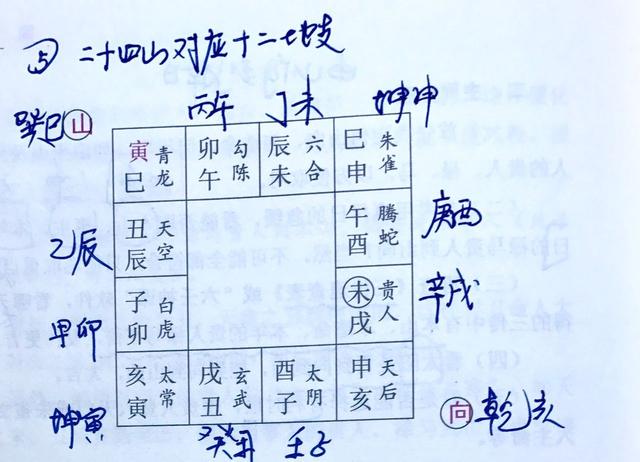 ⑤ 二十四山对应十二地支
丙午 丁未 坤申
巽巳 山
寅 青龙 巳
卯 勾陈 午
辰 六合 未
巳 朱雀 申
乙辰
丑 天空 辰
午 腾蛇 酉
庚酉
甲卯
子 白虎 卯
未 贵人 戌
辛戌
坤寅
亥 太常 寅
戌 玄武 丑
酉 太阴 子
申 天后 亥
向 乾亥
癸丑 壬子